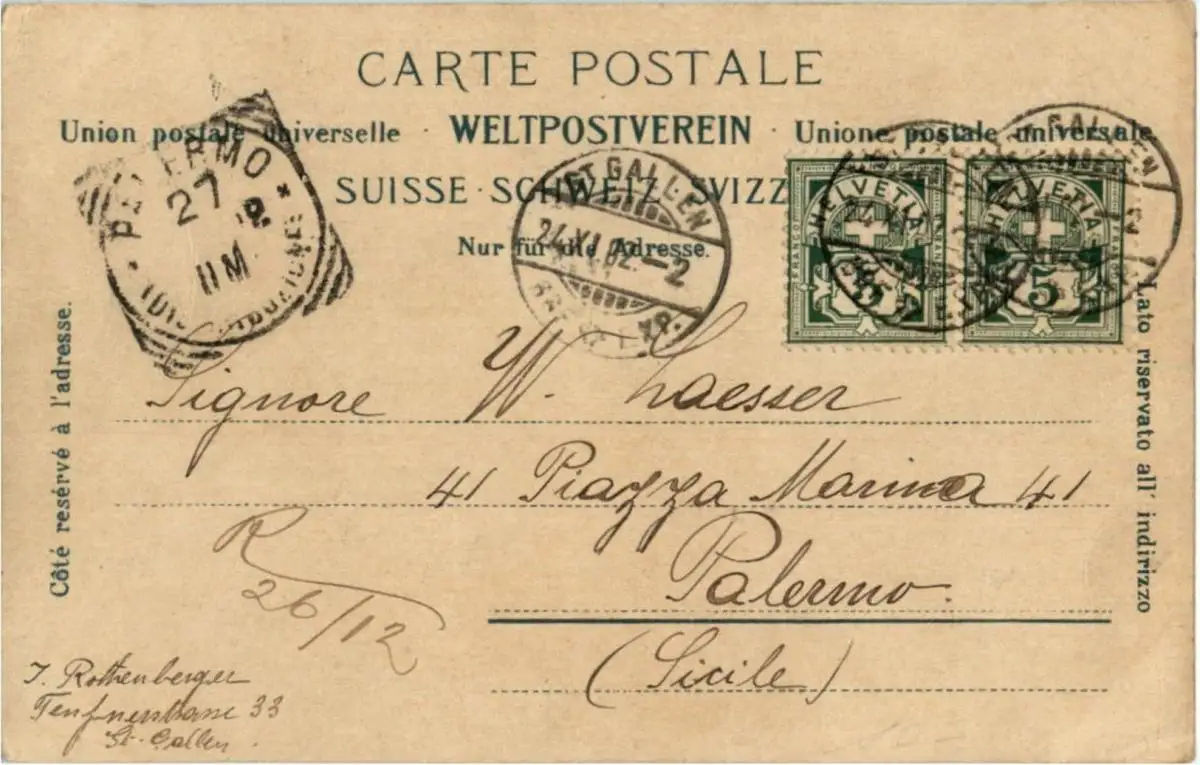 CARTE POSTALE
Union postale universelle · WELTPOSTVEREIN · Unione postale universale
SUISSE · SCHWEIZ · SVIZZ
Nur für die Adresse.
PALERMO
27
11M
ST. GALLEN
24.XI.02.–2
EXP.
HELVETIA
5
HELVETIA
5
GALLEN
Côté resérvé à l'adresse.
Lato riservato all' indirizzo
Signore W. Laesser
41 Piazza Marina 41
Palermo.
(Sicile)
R
26/12
J. Rothenberger
Teufnerstrasse 33
St. Gallen.